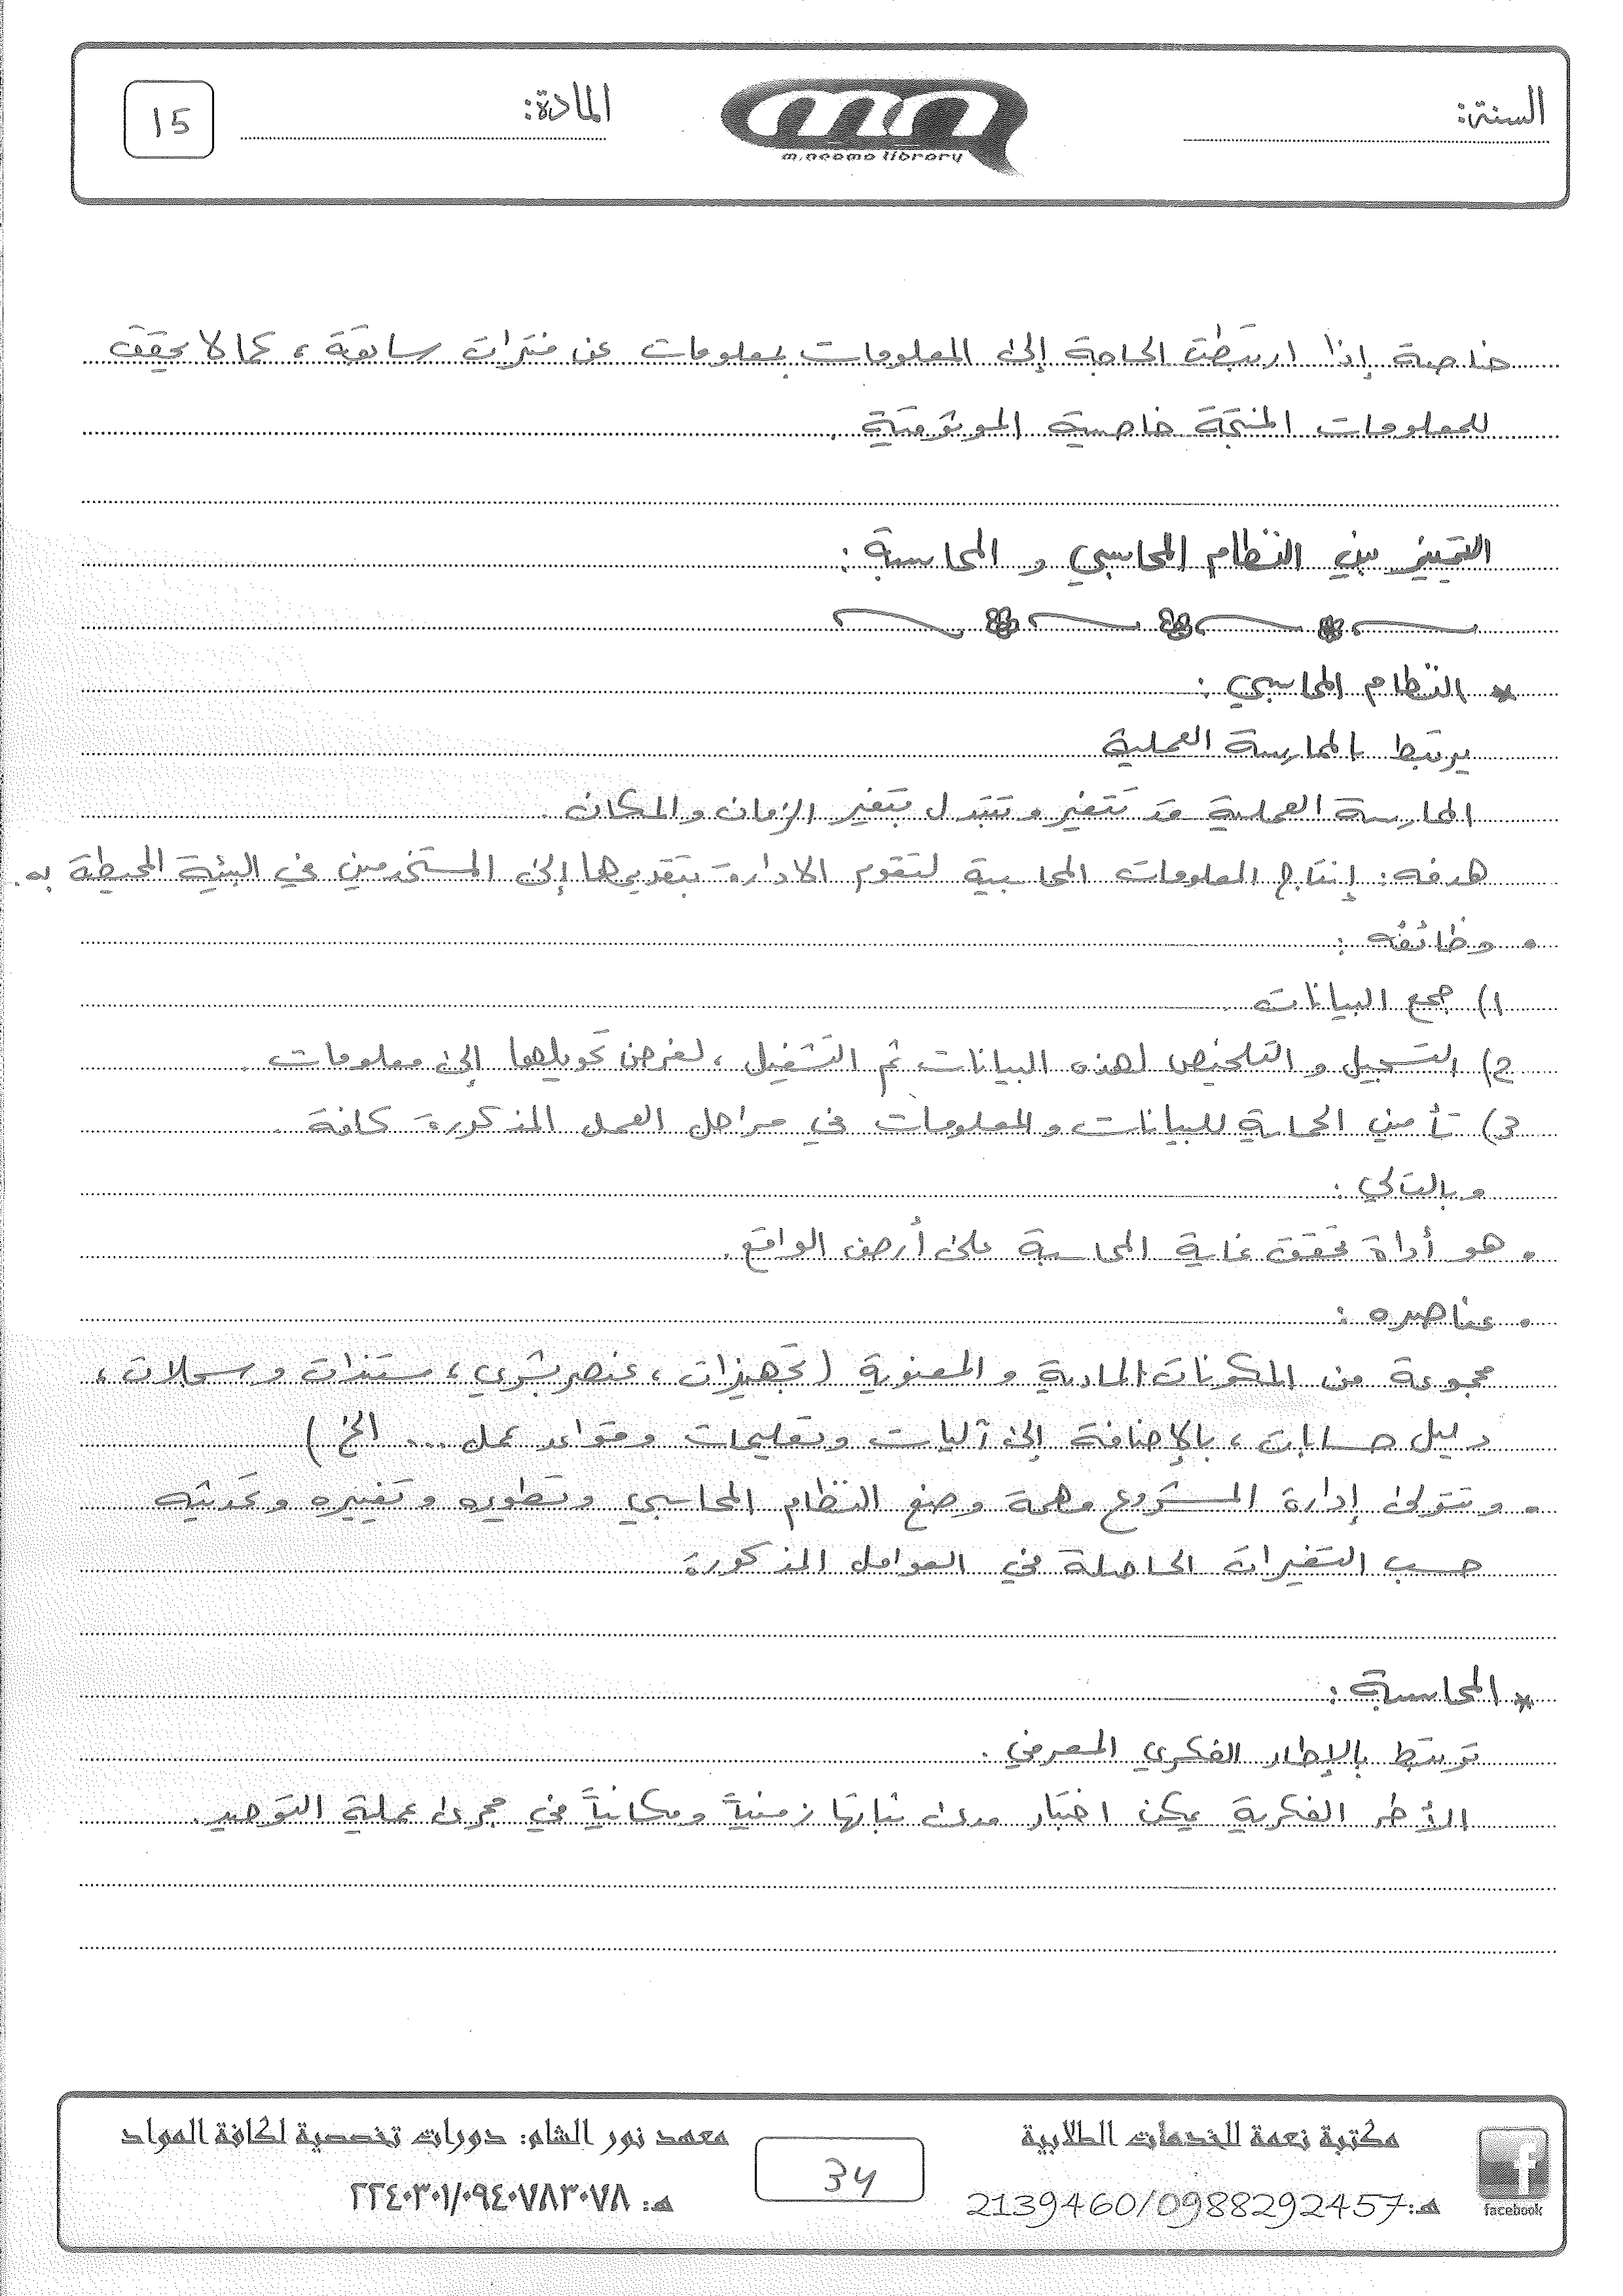 السنة:
m.neama library
المادة:
15
خاصة إذا ارتبطت الحاجة إلى المعلومات بمعلومات عن فترات سابقة، كما لا يحقق
للمعلومات المنتجة خاصية الموثوقية.
التمييز بين النظام المحاسبي و المحاسبة :
* النظام المحاسبي :
يرتبط بالممارسة العملية
الممارسة العملية قد تتغير و تتبدل بتغير الزمان والمكان.
هدفه: إنتاج المعلومات المحاسبية لتقوم الادارة بتقديمها إلى المستخدمين في البيئة المحيطة به.
• وظائفه :
1) جمع البيانات.
2) التسجيل و التلخيص لهذه البيانات ثم التشغيل، لغرض تحويلها إلى معلومات.
3) تأمين الحماية للبيانات والمعلومات في مراحل العمل المذكورة كافة.
وبالتالي :
• هو أداة تحقق غاية المحاسبة على أرض الواقع.
• عناصره :
مجموعة من المكونات المادية و المعنوية (تجهيزات، عنصر بشري، مستندات و سجلات،
دليل حسابات، بالإضافة إلى آليات وتعليمات وقواعد عمل ... الخ )
• وتتولى إدارة المشروع مهمة وضع النظام المحاسبي وتطويره وتغييره وتحديثه
حسب التغيرات الحاصلة في العوامل المذكورة
* المحاسبة :
ترتبط بالإطار الفكري المعرفي.
الأطر الفكرية يمكن اختبار مدى ثباتها زمنياً ومكانياً في مجرى عملية التوحيد.
facebook
مكتبة نعمة للخدمات الطلابية
هـ: 2139460/0988292457
34
معهد نور الشام: دورات تخصصية لكافة المواد
هـ: ٢٢٤٠٣٠١/٠٩٤٠٧٨٣٠٧٨